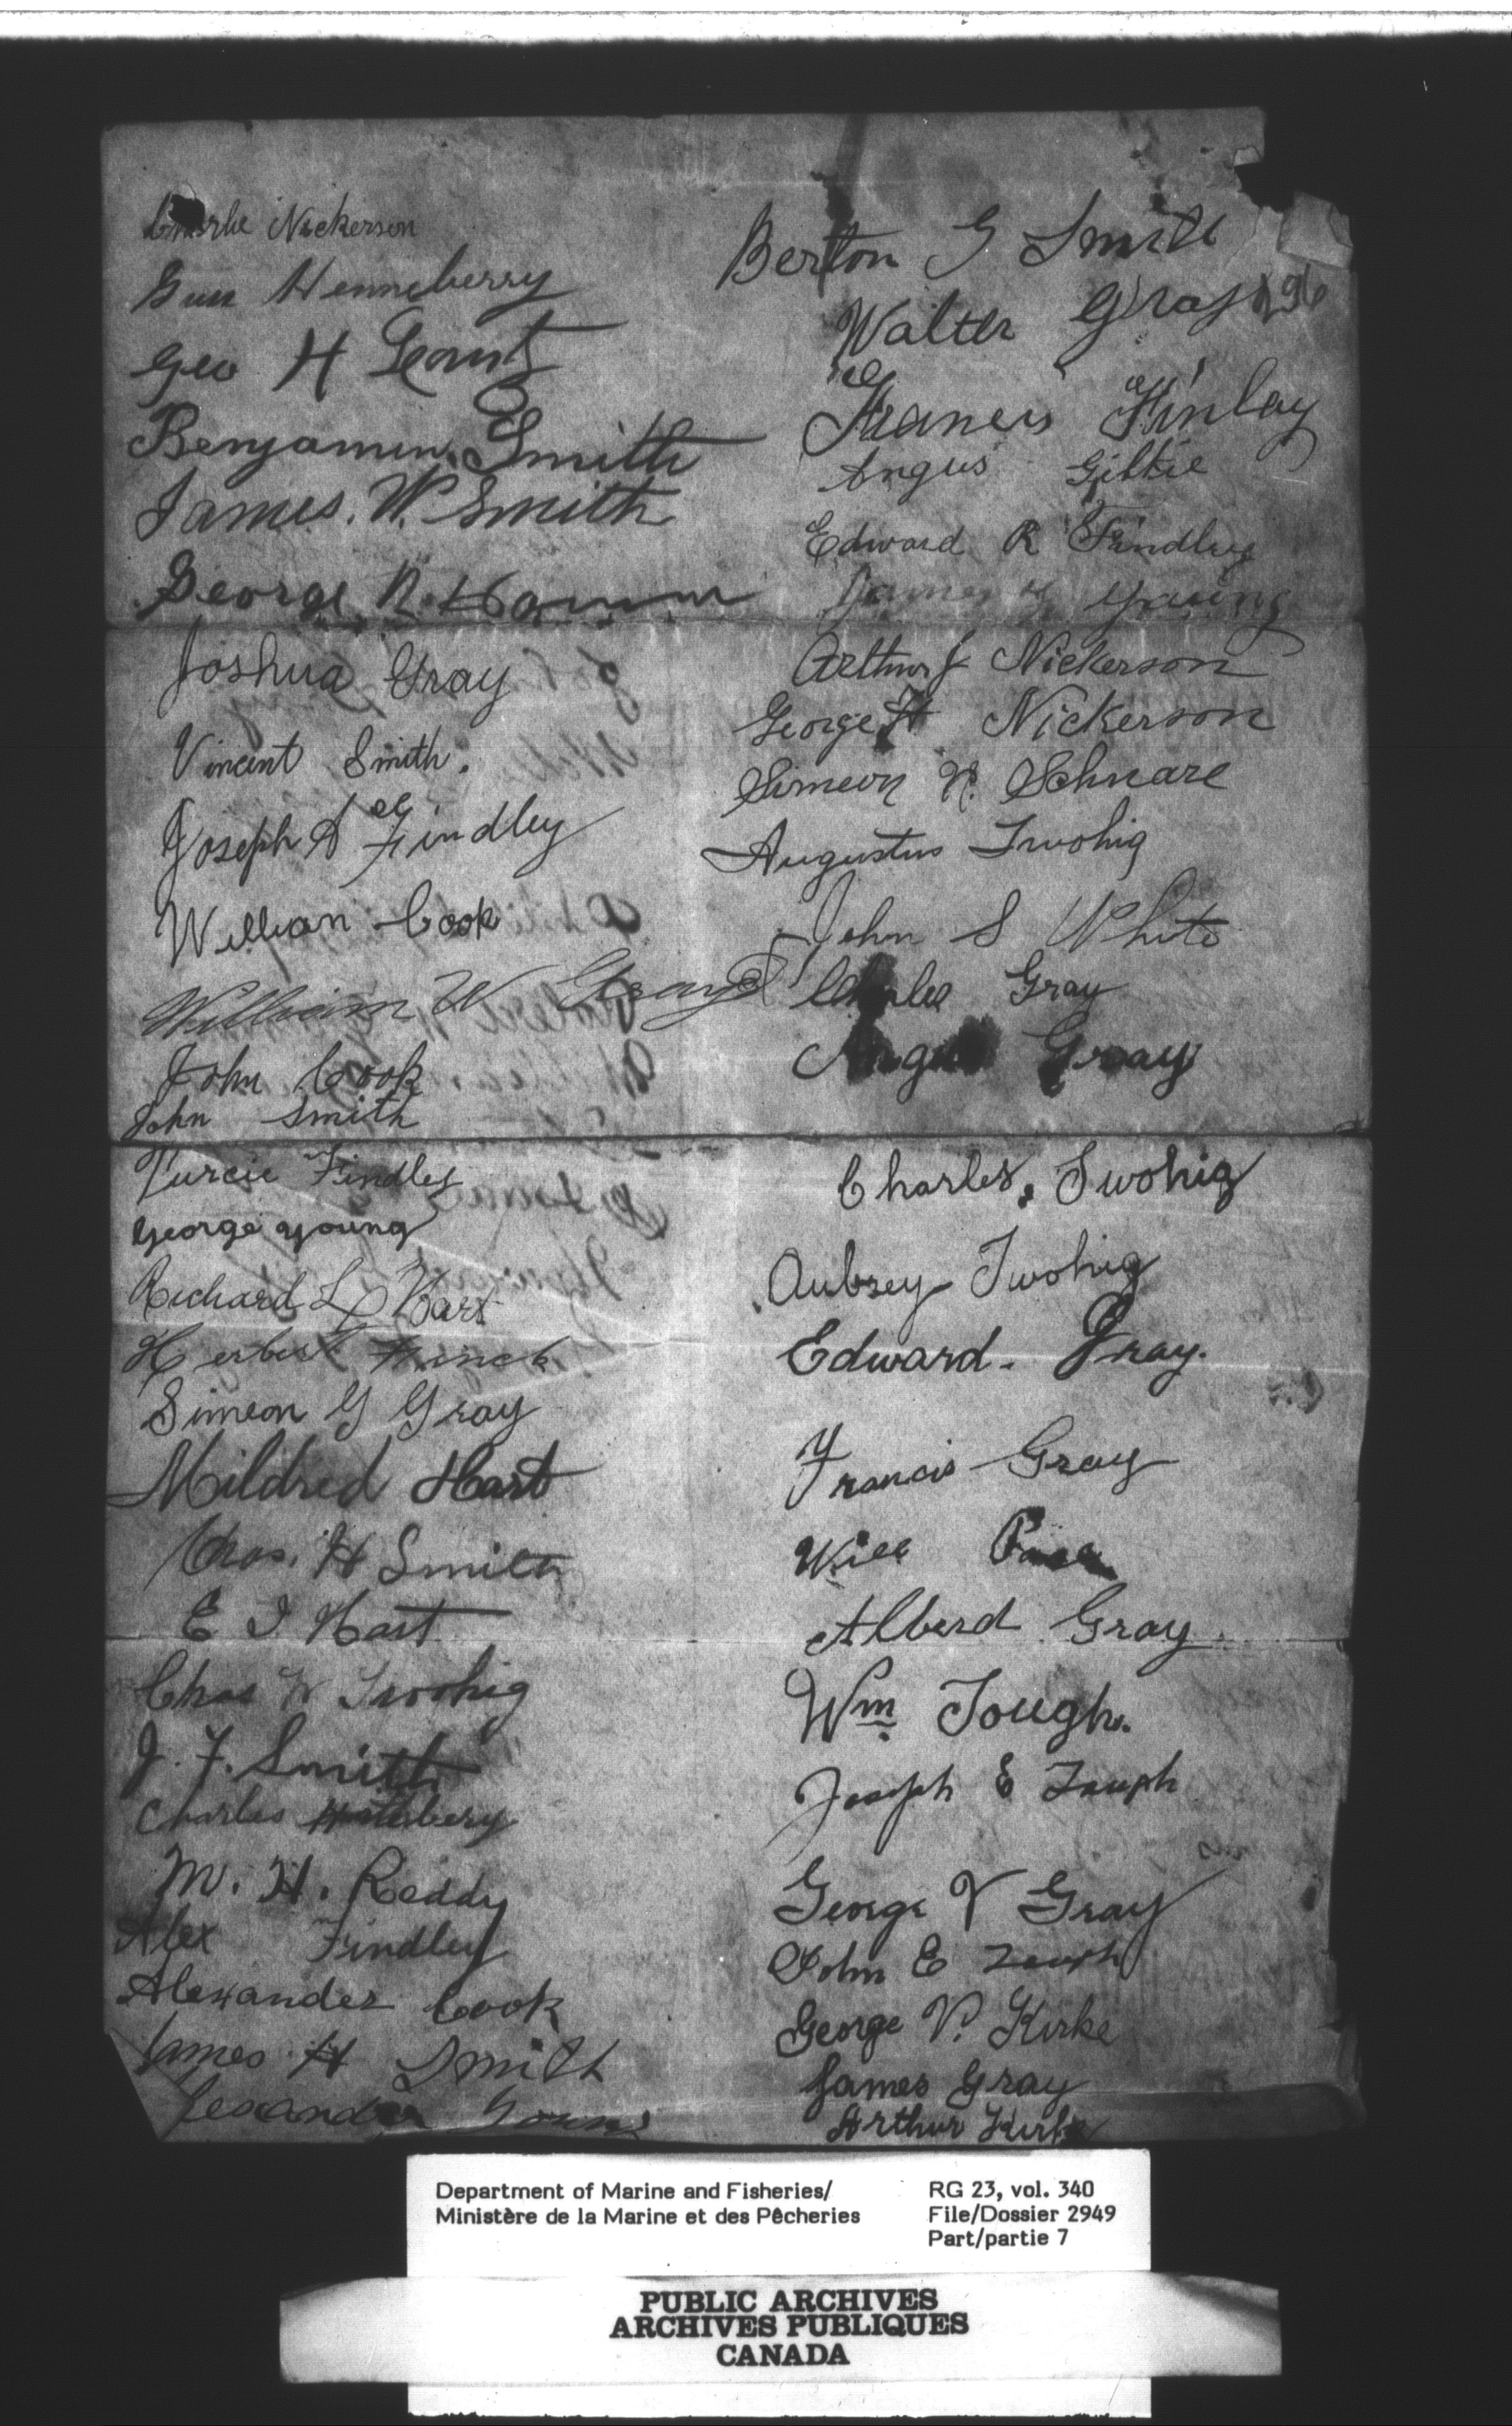 Charlie Nickerson
Gus Henneberry
Geo H Gauntz
Benjamin Smith
James. W. Smith
George N. Hamm
Joshua Gray
Vincent Smith.
Joseph A Findley
William Cook
William W Gray
John Cook
John Smith
Findley
George young
Richard L Hart
Herbert
Simeon G Gray
Mildred Hart
Chas. H Smith
E I Hart
Chas W Twohig
J. F. Smith
Charles
M. H. Reddy
Alex Findley
Alexander Cook
James H Smith
Young
Berton G Smith
Walter Gray 296
Francis Finlay
Angus
Edward R Findley
James Young
Arthur J Nickerson
George H Nickerson
Simeon N. Schnare
Augustus Twohig
John S White
Charles Gray
Angus Gray
Charles, Twohig
Aubrey Twohig
Edward. Gray.
Francis Gray
Will
Alberd Gray
Wm Tough.
Joseph E Tough
George V Gray
John E Tough
George V. Kirke
James Gray
Arthur Kirke
Department of Marine and Fisheries/ RG 23, vol. 340
Ministère de la Marine et des Pêcheries File/Dossier 2949
Part/partie 7
PUBLIC ARCHIVES
ARCHIVES PUBLIQUES
CANADA